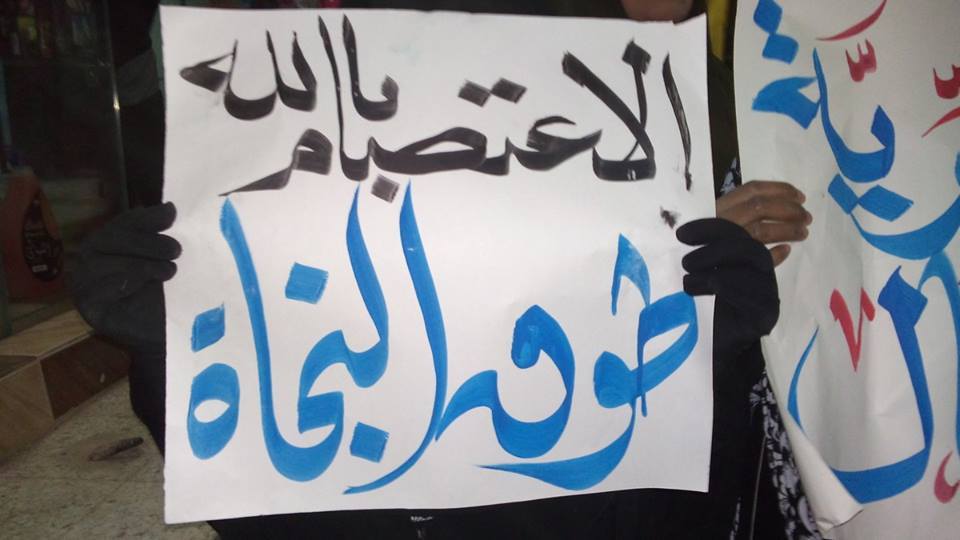 الاعتصام باالله
طوق النجاة